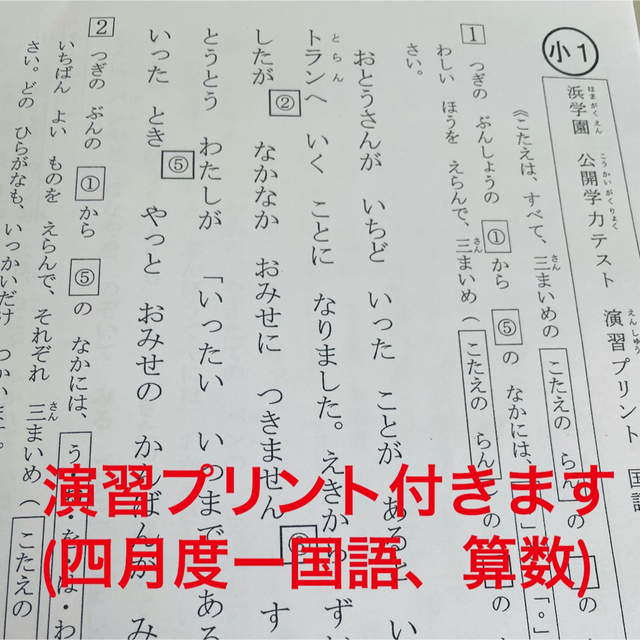 小1
浜学園 公開学力テスト 演習プリント 国語
はまがくえん こうかいがくりょく えんしゅう
《こたえは、すべて、三まいめの こたえの らん の
さん
1 つぎの ぶんしょうの ①から ⑤の なかには、
わしい ほうを えらんで、三まいめ(こたえの らん の
さん
さい。
おとうさんが いちど いった ことが ある
トランへ いく ことに なりました。えきから ず
とらん
したが ② なかなか おみせに つきません
とうとう わたしが 「いったい いつまで ある
いった とき ⑤ やっと おみせの かんばんが み
2 つぎの ぶんの ①から ⑤の なかには、
いちばん よい ものを えらんで、それぞれ 三まいめ(こたえの
さん
さい。どの ひらがなも、いっかいだけ つかいます。
演習プリント付きます
(四月度ー国語、算数)